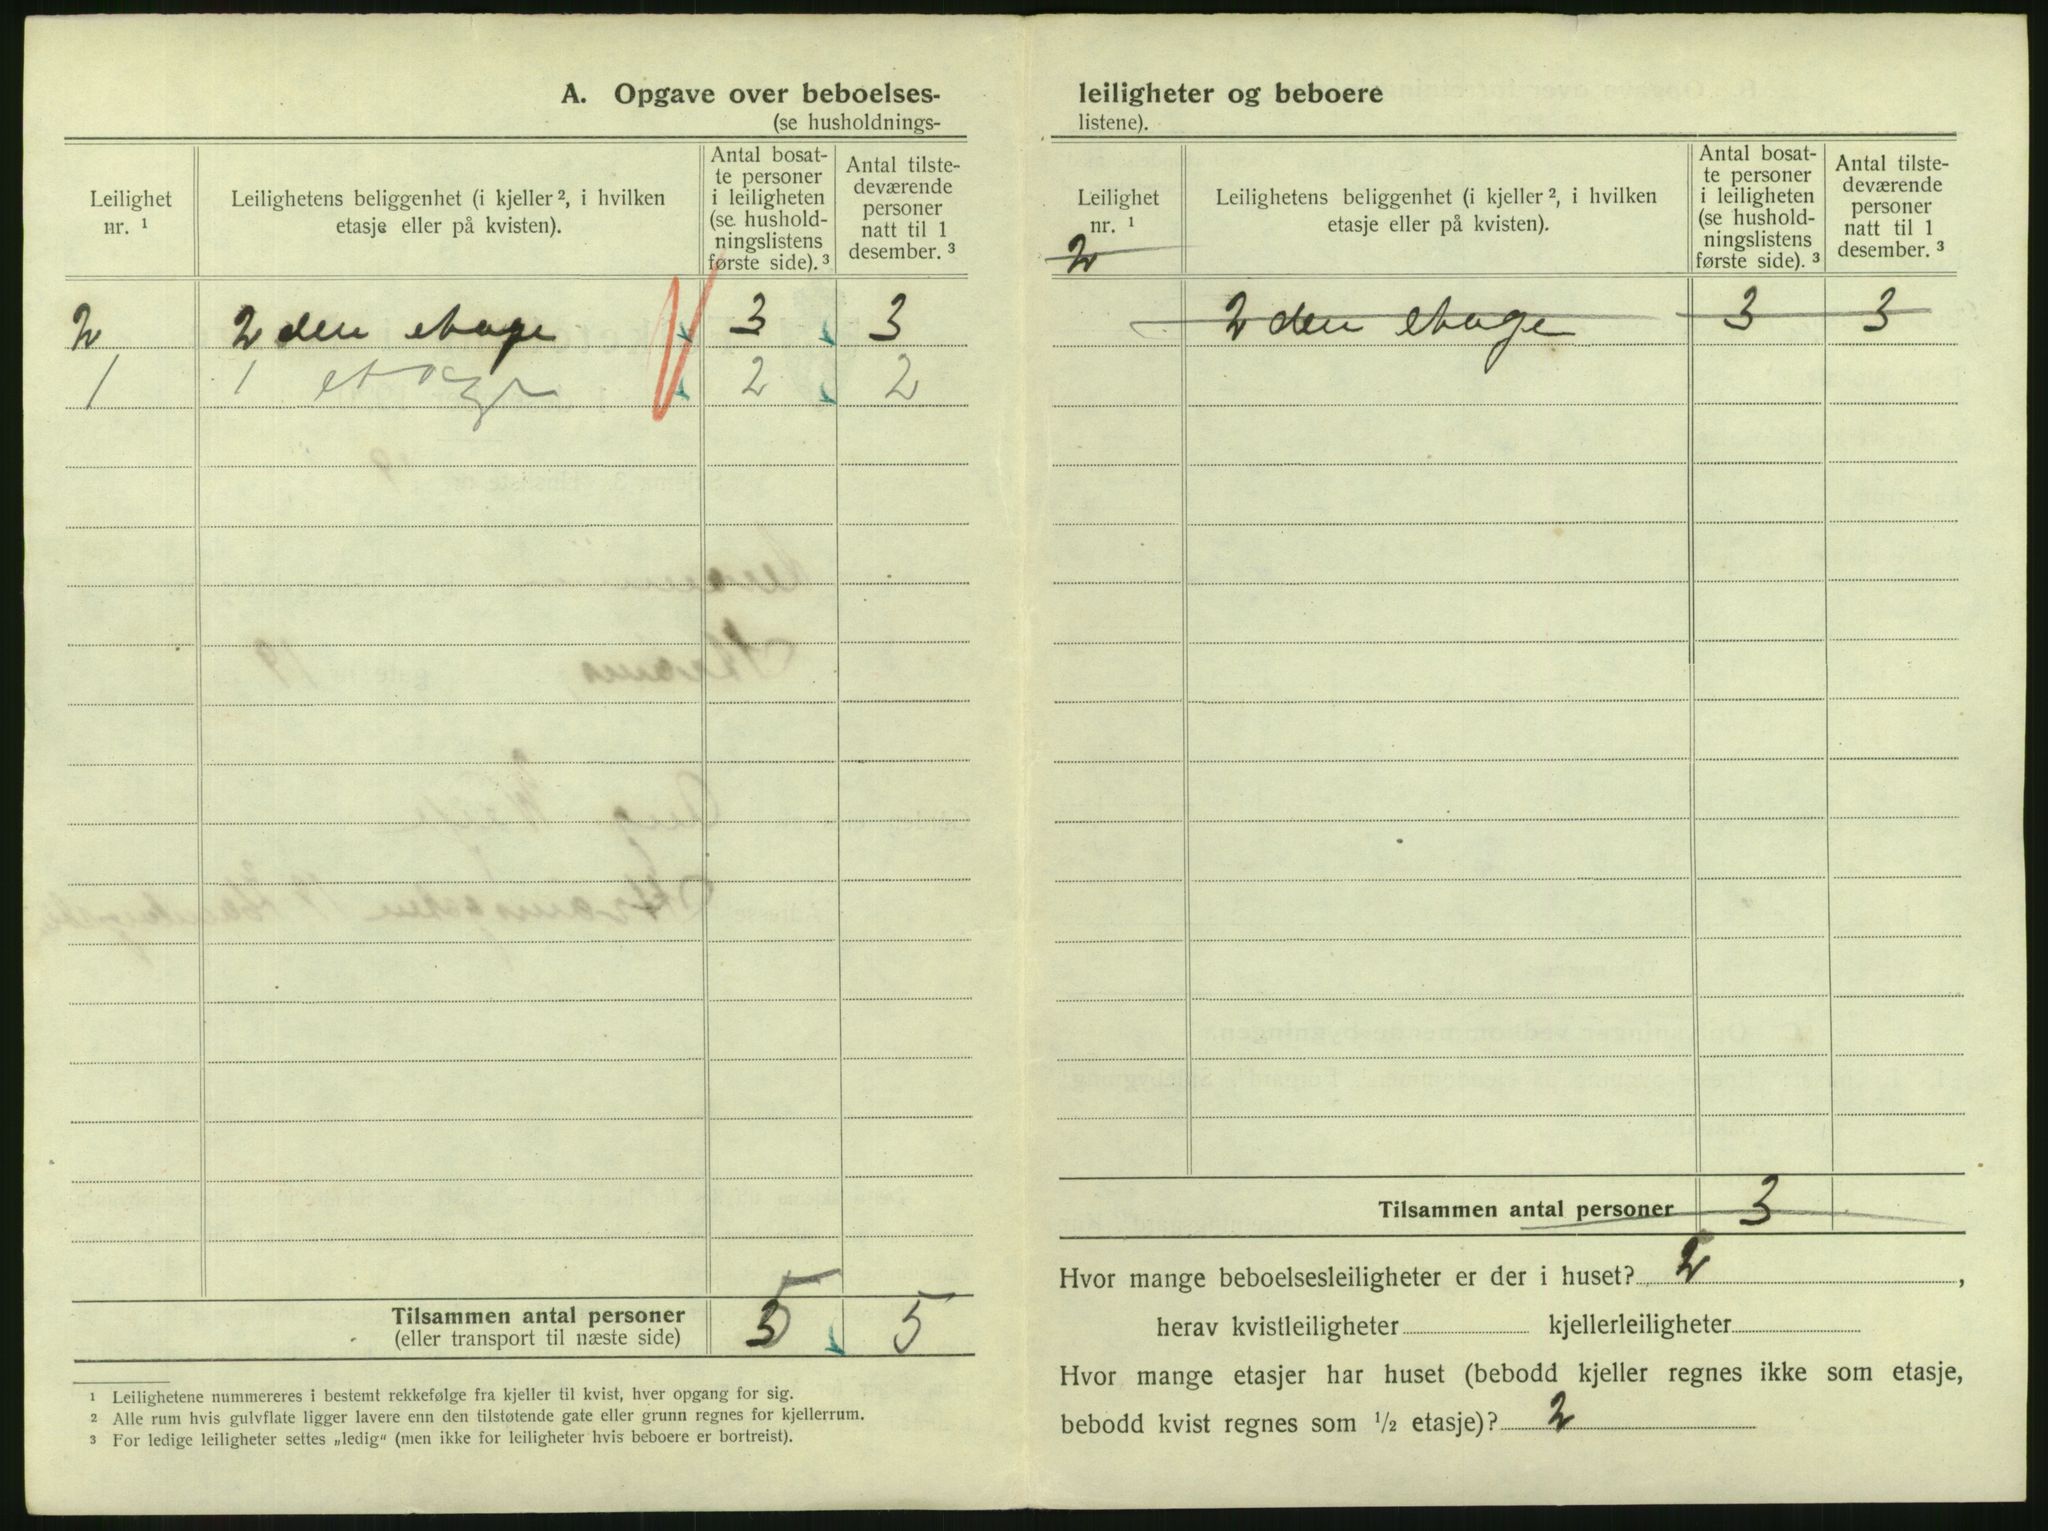 A. Opgave over beboelses-
(se husholdnings-
Leilighet nr. ¹
Leilighetens beliggenhet (i kjeller ², i hvilken etasje eller på kvisten).
Antal bosat-
te personer
i leiligheten
(se hushold-
ningslistens
første side). ³
Antal tilste-
deværende
personer
natt til 1
desember. ³
2 2 den etage 3 3
1 1 etage 2 2
Tilsammen antal personer 3 5 5
(eller transport til næste side)
¹ Leilighetene nummereres i bestemt rekkefølge fra kjeller til kvist, hver opgang for sig.
² Alle rum hvis gulvflate ligger lavere enn den tilstøtende gate eller grunn regnes for kjellerrum.
³ For ledige leiligheter settes „ledig“ (men ikke for leiligheter hvis beboere er bortreist).
leiligheter og beboere
listene).
Leilighet nr. ¹
2
Leilighetens beliggenhet (i kjeller ², i hvilken etasje eller på kvisten).
Antal bosat-
te personer
i leiligheten
(se hushold-
ningslistens
første side). ³
Antal tilste-
deværende
personer
natt til 1
desember. ³
2 den etage 3 3
Tilsammen antal personer 3
Hvor mange beboelsesleiligheter er der i huset? 2 ,
herav kvistleiligheter kjellerleiligheter
Hvor mange etasjer har huset (bebodd kjeller regnes ikke som etasje,
bebodd kvist regnes som ½ etasje)? 2